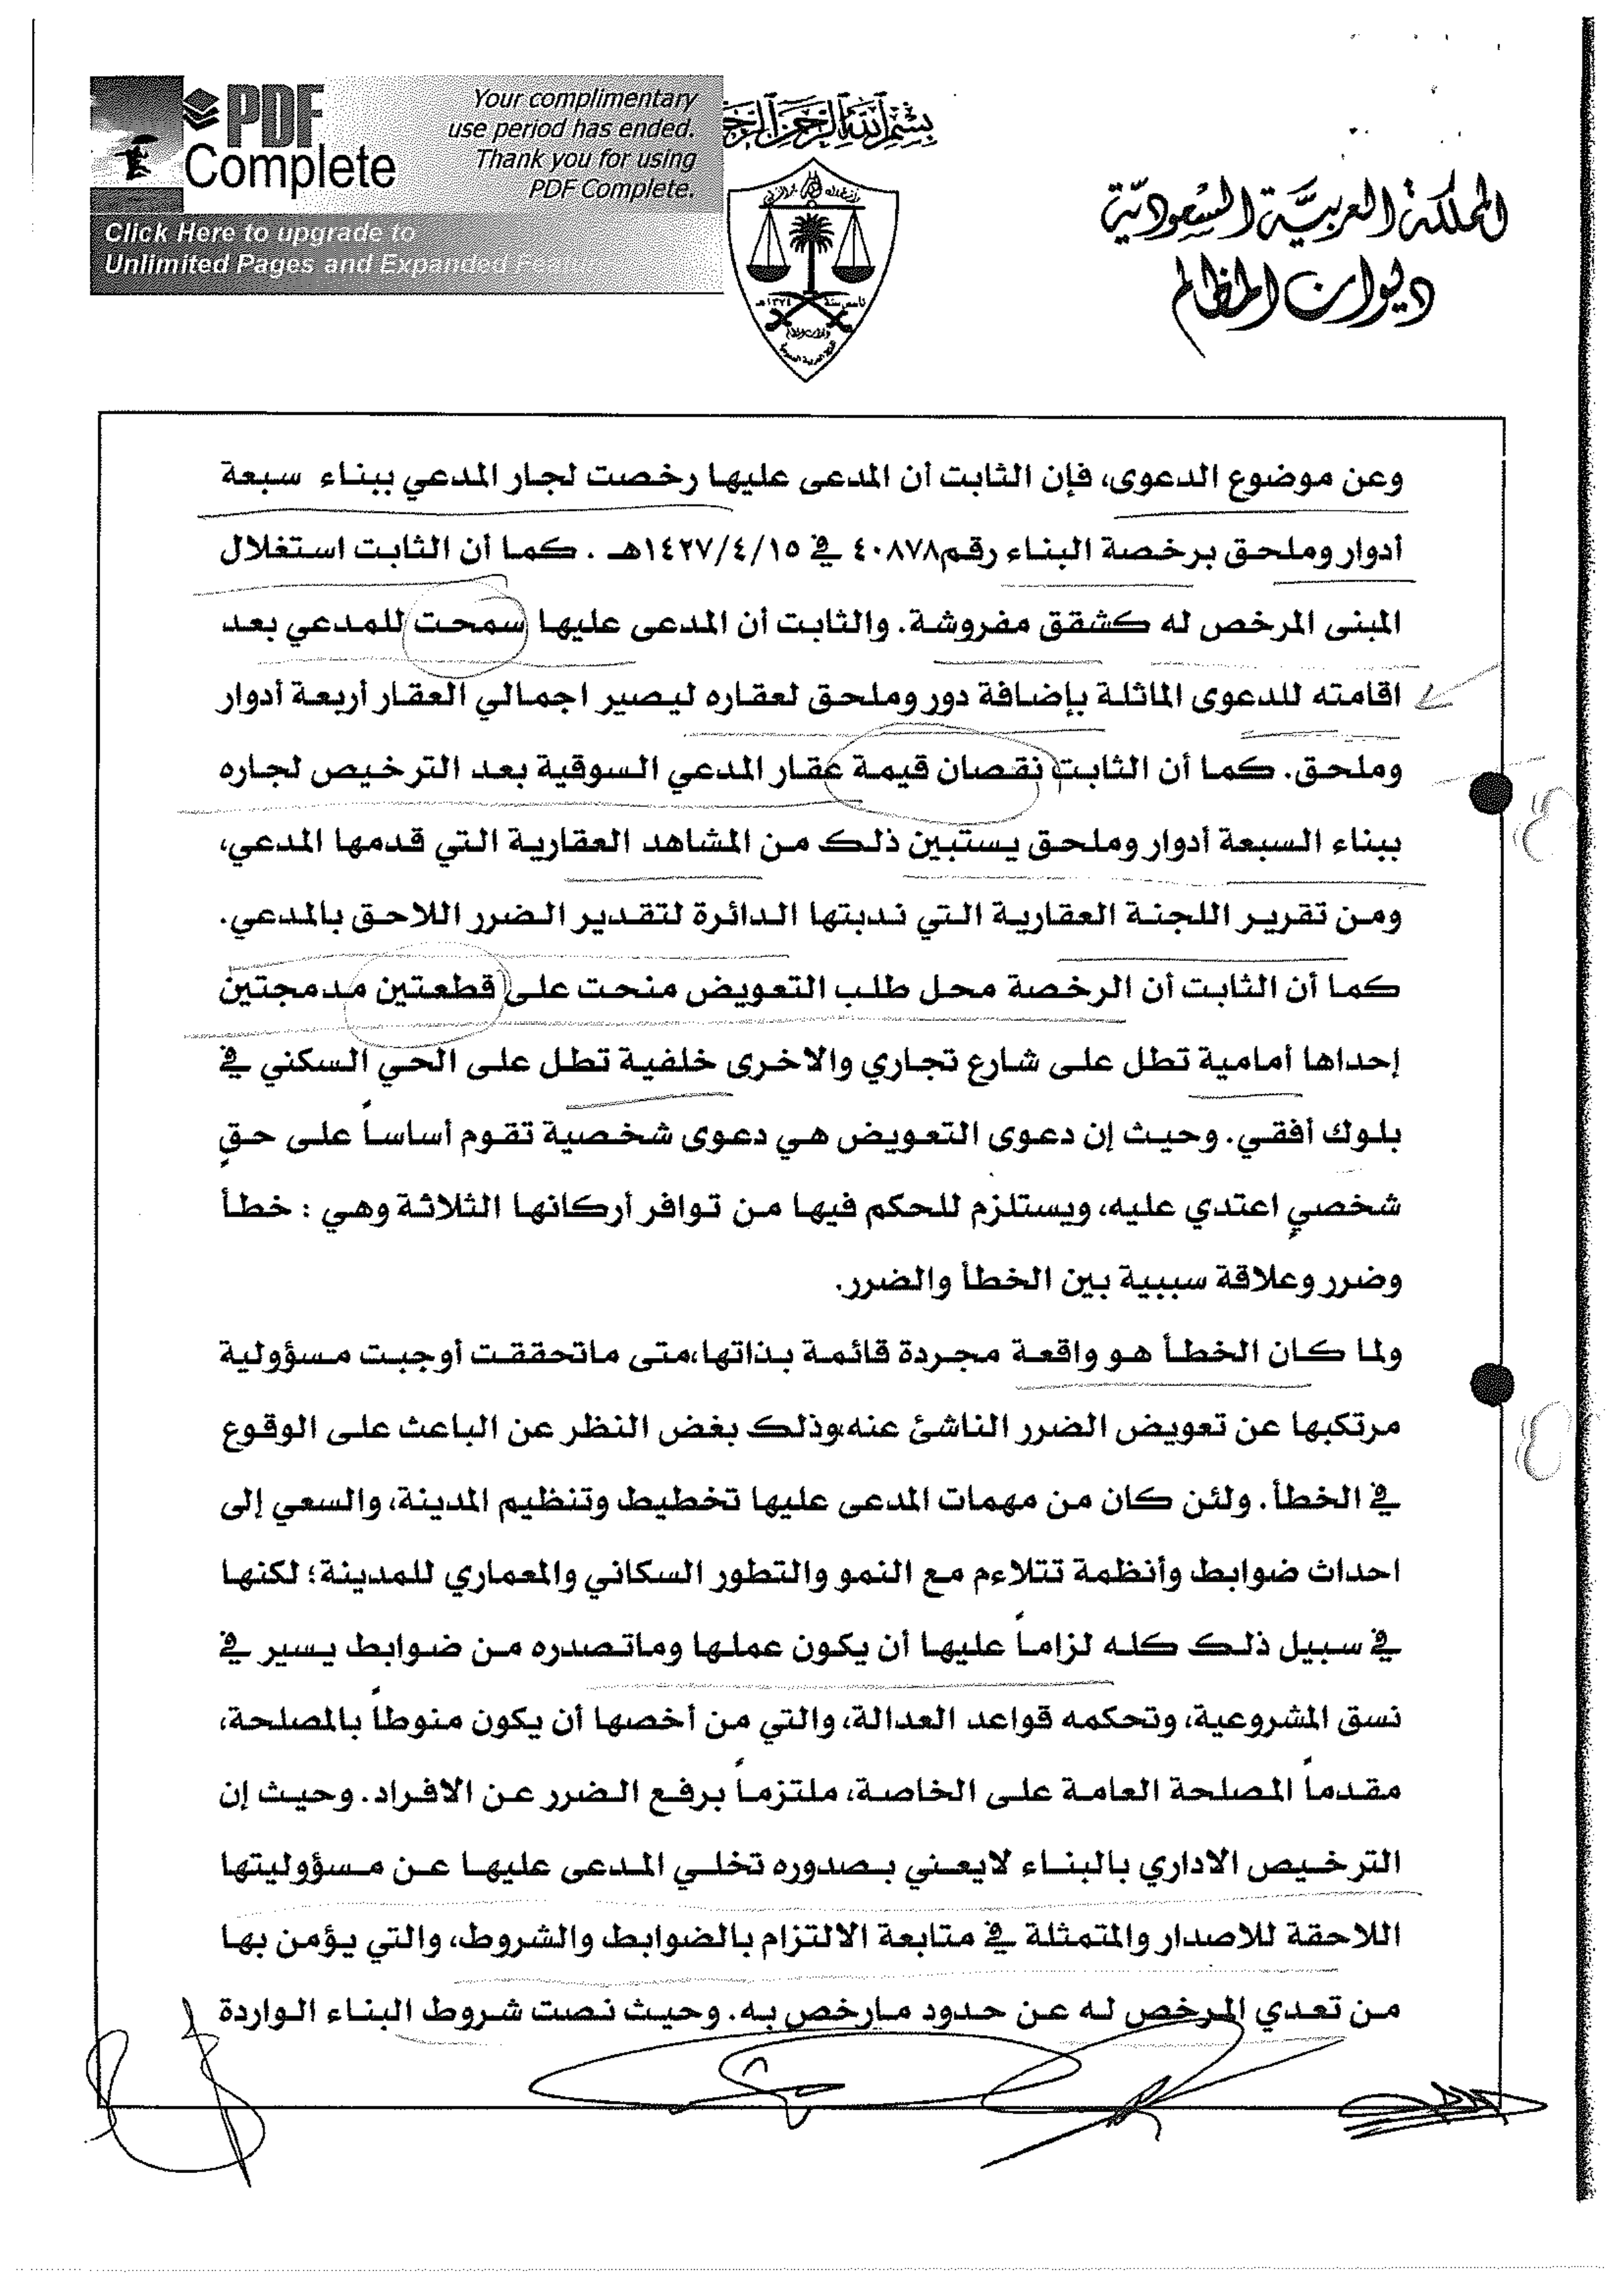 PDF
Complete
Your complimentary
use period has ended.
Thank you for using
PDF Complete.
Click Here to upgrade to
Unlimited Pages and Expanded Features
بسم الله الرحمن الرحيم
المملكة العربية السعودية
ديوان المظالم
وعن موضوع الدعوى، فإن الثابت أن المدعى عليها رخصت لجار المدعي ببناء سبعة
أدوار وملحق برخصة البناء رقم٤٠٨٧٨ في ١٤٢٧/٤/١٥هـ . كما أن الثابت استغلال
المبنى المرخص له كشقق مفروشة. والثابت أن المدعى عليها سمحت للمدعي بعد
اقامته للدعوى الماثلة بإضافة دور وملحق لعقاره ليصير اجمالي العقار أربعة أدوار
وملحق. كما أن الثابت نقصان قيمة عقار المدعي السوقية بعد الترخيص لجاره
ببناء السبعة أدوار وملحق يستبين ذلك من المشاهد العقارية التي قدمها المدعي،
ومن تقرير اللجنة العقارية التي ندبتها الدائرة لتقدير الضرر اللاحق بالمدعي.
كما أن الثابت أن الرخصة محل طلب التعويض منحت على قطعتين مدمجتين
إحداها أمامية تطل على شارع تجاري والاخرى خلفية تطل على الحي السكني في
بلوك أفقي. وحيث إن دعوى التعويض هي دعوى شخصية تقوم أساساً على حقٍ
شخصيٍ اعتدي عليه، ويستلزم للحكم فيها من توافر أركانها الثلاثة وهي : خطأ
وضرر وعلاقة سببية بين الخطأ والضرر.
ولما كان الخطأ هو واقعة مجردة قائمة بذاتها،متى ماتحققت أوجبت مسؤولية
مرتكبها عن تعويض الضرر الناشئ عنه،وذلك بغض النظر عن الباعث على الوقوع
في الخطأ. ولئن كان من مهمات المدعى عليها تخطيط وتنظيم المدينة، والسعي إلى
احداث ضوابط وأنظمة تتلاءم مع النمو والتطور السكاني والمعماري للمدينة؛ لكنها
في سبيل ذلك كله لزاماً عليها أن يكون عملها وماتصدره من ضوابط يسير في
نسق المشروعية، وتحكمه قواعد العدالة، والتي من أخصها أن يكون منوطاً بالمصلحة،
مقدماً المصلحة العامة على الخاصة، ملتزماً برفع الضرر عن الافراد. وحيث إن
الترخيص الاداري بالبناء لايعني بصدوره تخلي المدعى عليها عن مسؤوليتها
اللاحقة للاصدار والمتمثلة في متابعة الالتزام بالضوابط والشروط، والتي يؤمن بها
من تعدي المرخص له عن حدود مارخص به. وحيث نصت شروط البناء الواردة